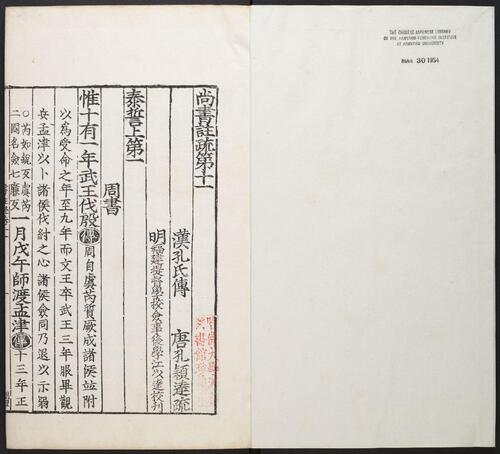 尚書註疏第十一
漢孔氏傳
唐孔穎達疏
明福建提督學校僉事後學江以達校刊
泰誓上第一
周書
惟十有一年武王伐殷傳周自虞芮質厥成諸侯並附
以為受命之年至九年而文王卒武王三年服畢觀
兵孟津以卜諸侯伐紂之心諸侯僉同乃退以示弱
○芮如銳反虞芮
二國名僉七廉反
一月戊午師渡孟津傳十三年正
THE CHINESE-JAPANESE LIBRARY
OF THE HARVARD-YENCHING INSTITUTE
AT HARVARD UNIVERSITY
MAR 30 1954